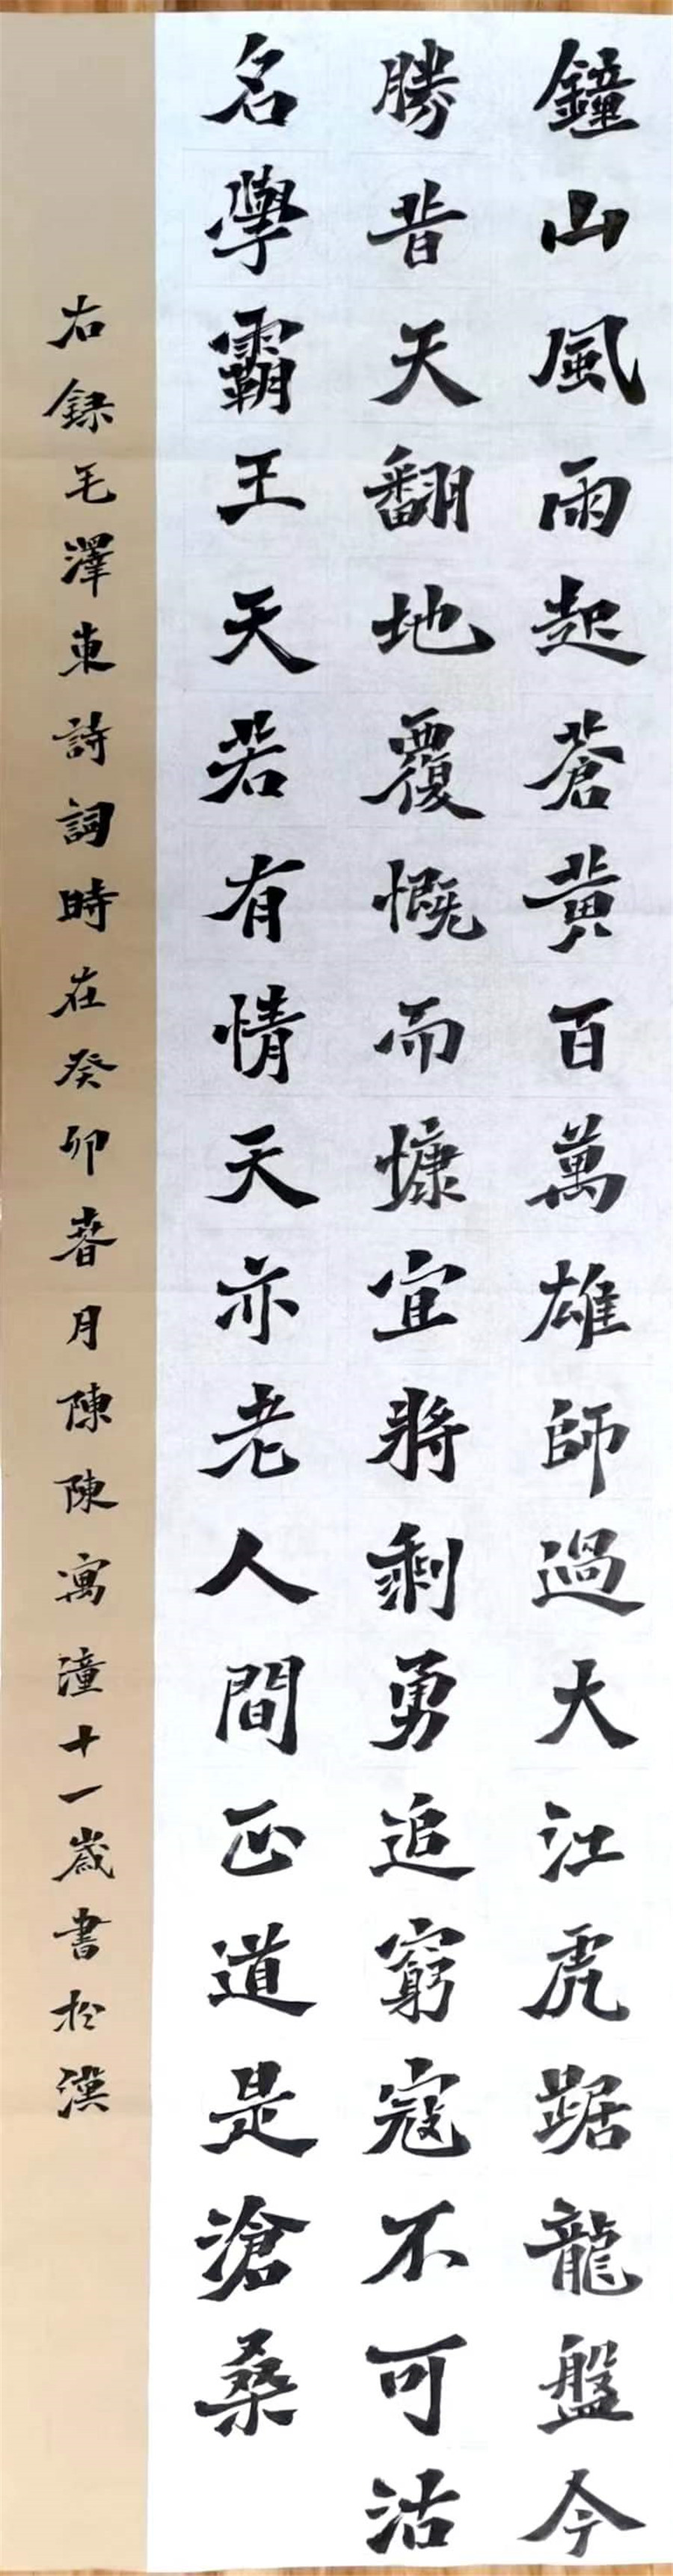 鐘山風雨起蒼黄百萬雄師過大江虎踞龍盤今
勝昔天翻地覆慨而慷宜將剩勇追窮寇不可沽
名學霸王天若有情天亦老人間正道是滄桑
右録毛澤東詩詞時在癸卯春月陳陳寓潼十一歲書於漢